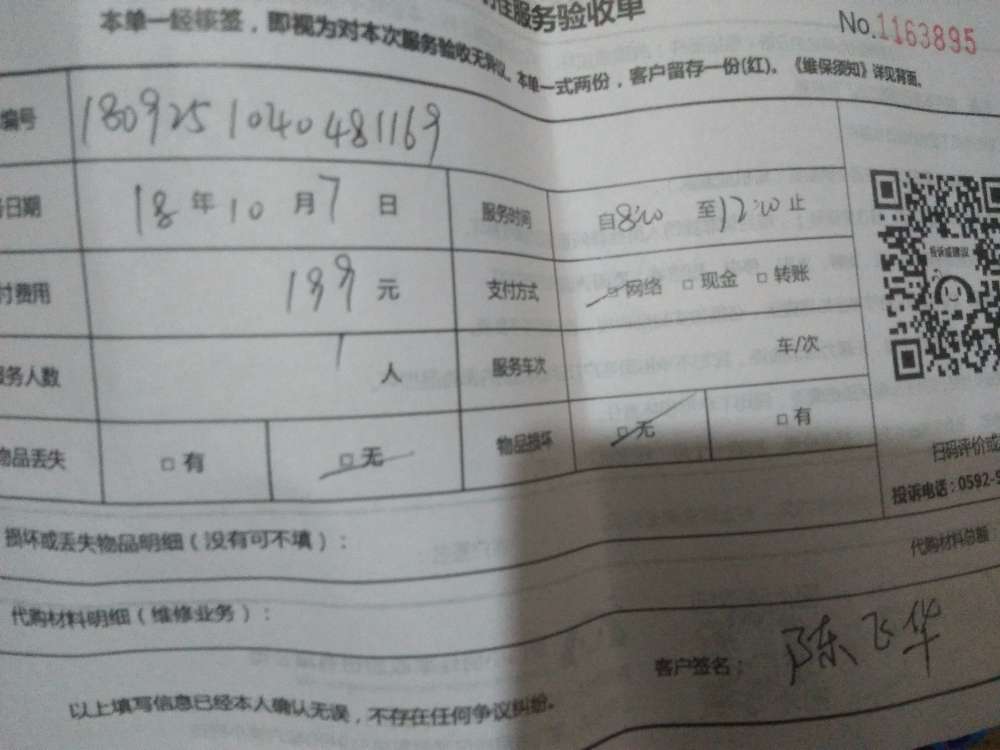 准服务验收单
No.1163895
本单一经核签,即视为对本次服务验收无异议。本单一式两份,客户留存一份(红)。《维保须知》详见背面。
编号 180925104048 1169
日期 18 年 10 月 7 日 服务时间 自 8:00 至 12:00 止
付费用 199 元 支付方式 □ 网络 □ 现金 □ 转账
服务人数 1 人 服务车次 车/次
物品丢失 □ 有 □ 无 物品损坏 □ 无 □ 有
投诉或建议
扫码评价或
投诉电话:0592-9
损坏或丢失物品明细(没有可不填):
代购材料总额:
代购材料明细(维修业务):
客户签名: 陈飞华
以上填写信息已经本人确认无误,不存在任何争议纠纷。